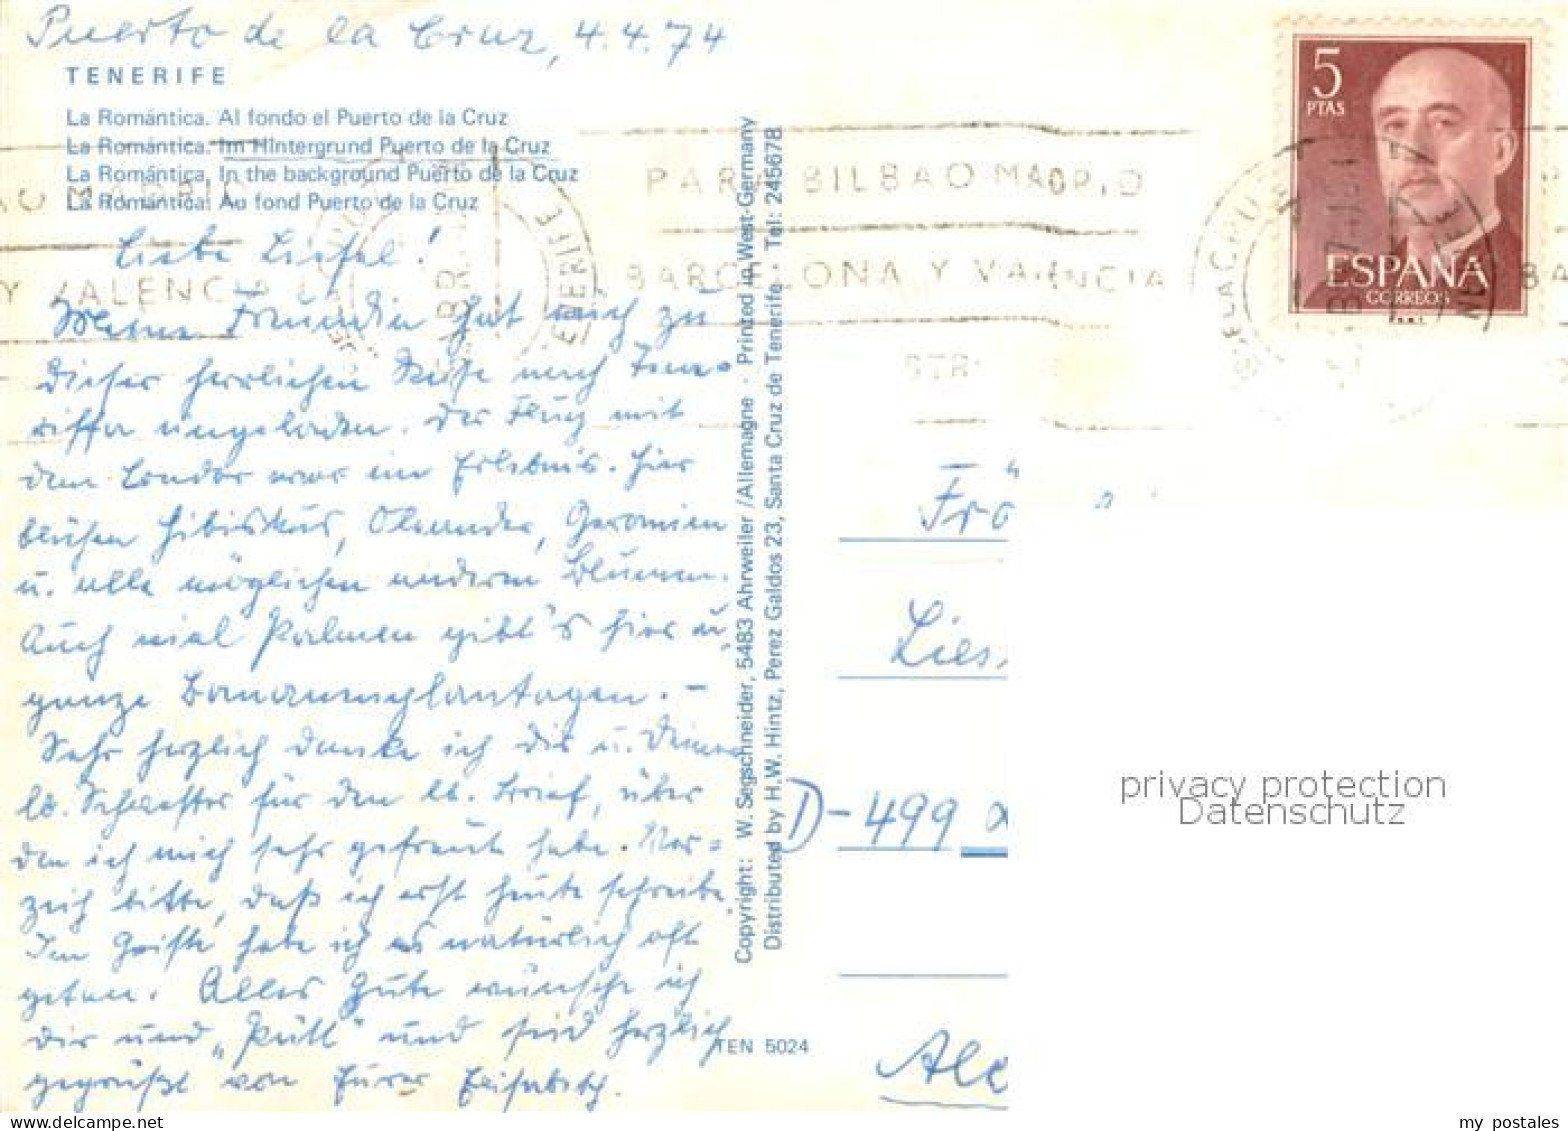 Puerto de la Cruz, 4.4.74
TENERIFE
La Romántica. Al fondo el Puerto de la Cruz
La Romántica. Im Hintergrund Puerto de la Cruz
La Romántica. In the background Puerto de la Cruz
La Romántica. Au fond Puerto de la Cruz
Liebe Liesel!
Meine Freundin hat mich zu
dieser herrlichen Reise nach Tene-
riffa eingeladen. Der Flug mit
dem Condor war ein Erlebnis. Hier
blühen Hibiskus, Oleander, Geranien
u. alle möglichen anderen Blumen.
Auch viel Palmen gibt's hier u.
ganze Bananenplantagen. –
Sehr herzlich danke ich Dir u. Deiner
lb. Schwester für den lb. Brief, über
den ich mich sehr gefreut habe. Ver=
zeih bitte, daß ich erst heute schreibe.
Im Geiste habe ich es natürlich oft
getan. Alles Gute wünsche ich
Dir und "Pütt" und seid herzlich
gegrüßt von Eurer Elisabeth.
Copyright: W. Segschneider, 5483 Ahrweiler/Allemagne · Printed in West-Germany
Distributed by H.W. Hintz, Perez Galdos 23, Santa Cruz de Tenerife Tel: 245678
TEN 5024
5
PTAS
ESPAÑA
CORREOS
F.N.M.T.
BILBAO MADRID
BARCELONA Y VALENCIA
Y VALENCIA
Frö
Lies
D-499
privacy protection
Datenschutz
Ale
delcampe.net
my_postales